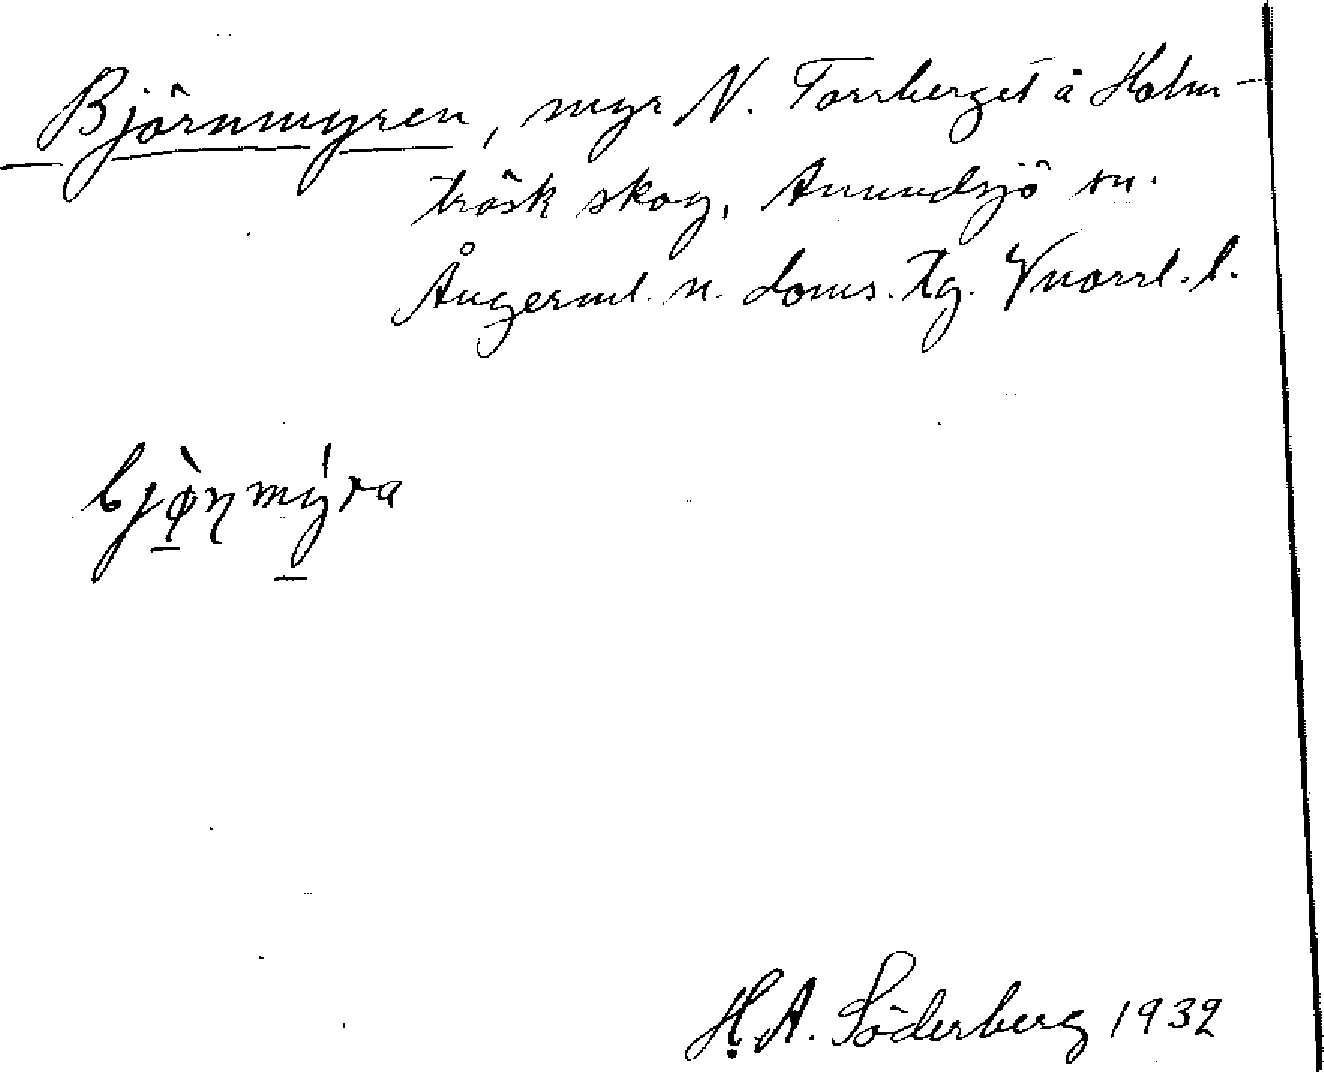 Björnmyren, myr N. Torrberget å Holm-
träsk skog, Anundsjö sn.
Ångerml. n. doms. tg. Vnorrl. l.
bjø̀ṇmýra
H. A. Söderberg 1932